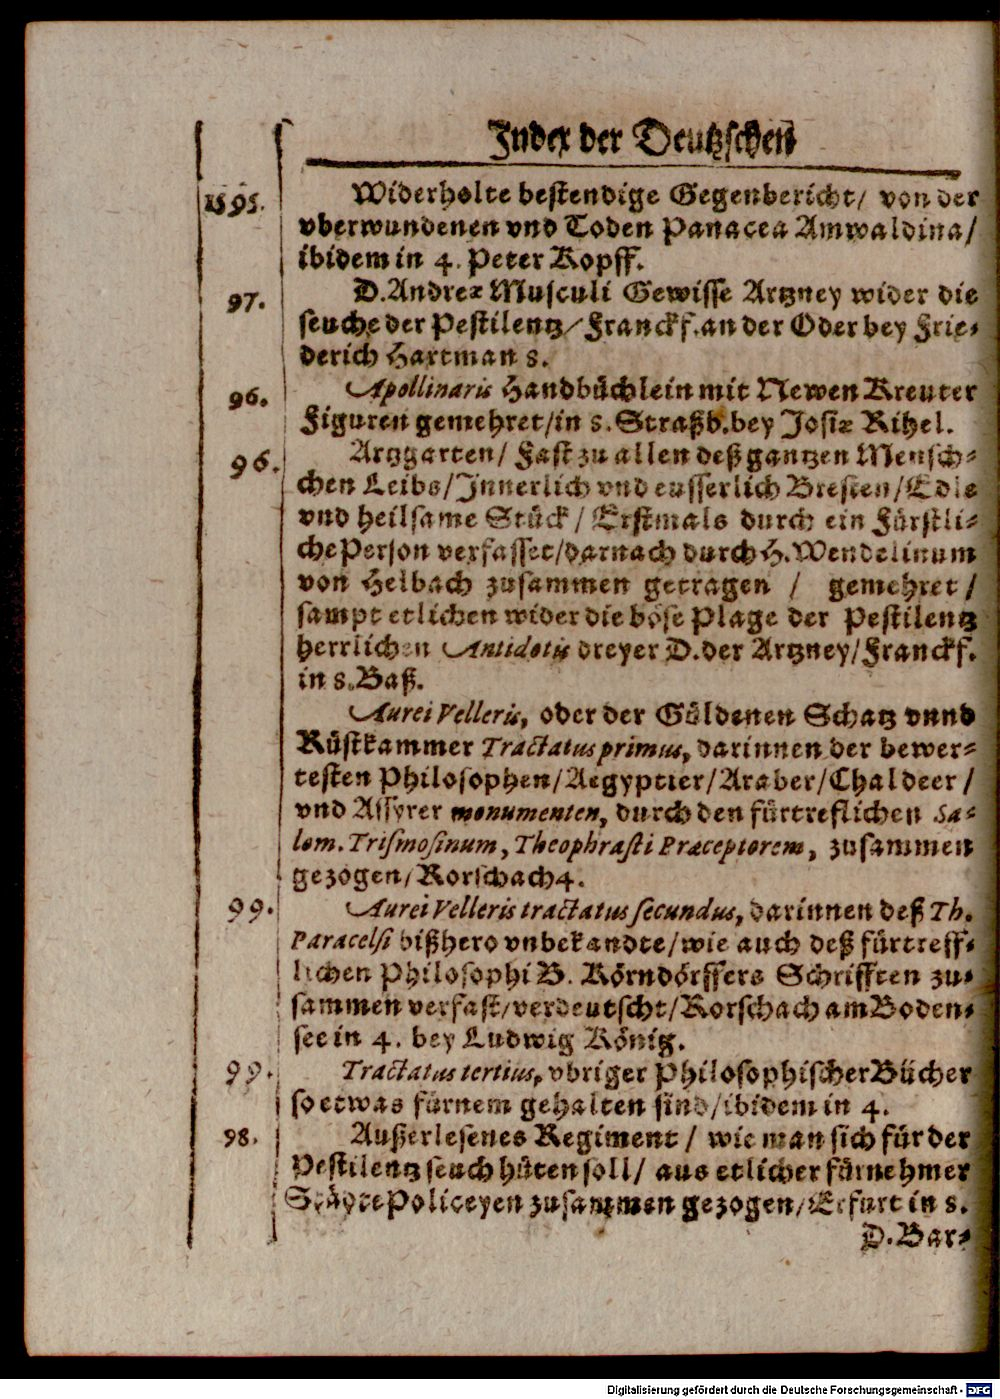 Index der Deutzschen
1595. Widerholte bestendige Gegenbericht/ von der
vberwundenen vnd Toden Panacea Amwaldina/
ibidem in 4. Peter Kopff.
97. D. Andreæ Musculi Gewisse Artzney wider die
seuche der Pestilentz/ Franckf. an der Oder bey Frie-
derich Hartman 8.
96. Apollinaris Handbüchlein mit Newen Kreuter
Figuren gemehret/ in 8. Straßb. bey Josiæ Rihel.
96. Artzgarten/ Fast zu allen deß gantzen Mensch-
chen Leibs/ Innerlich vnd eusserlich Bresten/ Edle
vnd heilsame Stück/ Erstmals durch ein Fürstli-
che Person verfasset/ darnach durch H. Wendelinum
von Helbach zusammen getragen / gemehret/
sampt etlichen wider die böse Plage der Pestilentz
herrlichen Antidotis dreyer D. der Artzney/ Franckf.
in 8. Baß.
Aurei Velleris, oder der Güldenen Schatz vnnd
Rüstkammer Tractatus primus, darinnen der bewer-
testen Philosophen/ Aegyptier/ Araber/ Chaldeer/
vnd Assyrer monumenten, durch den fürtreflichen Sa-
lom. Trismosinum, Theophrasti Præceptorem, zusammen
gezogen/ Rorschach 4.
99. Aurei Velleris tractatus secundus, darinnen deß Th.
Paracelsi bißhero vnbekandte/ wie auch deß fürtreff-
lichen Philosophi B. Körndörffers Schrifften zu-
sammen verfast/ verdeutscht/ Rorschach am Boden-
see in 4. bey Ludwig König.
99. Tractatus tertius, vbriger Philosophischer Bücher
so etwas fürnem gehalten sind/ ibidem in 4.
98. Außerlesenes Regiment/ wie man sich für der
Pestilentz seuch hüten soll/ aus etlicher fürnehmer
Städte Policeyen zusammen gezogen/ Erfurt in 8.
D. Bar-
Digitalisierung gefördert durch die Deutsche Forschungsgemeinschaft - DFG